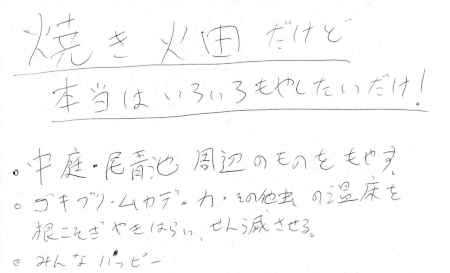 焼き火田だけど
本当はいろいろもやしたいだけ!
・中庭・尾竜池 周辺のものをもやす。
・ゴキブリ・ムカデ・カ・その他虫の温床を
根こそぎやきはらい、せん滅させる。
・みんなハッピー